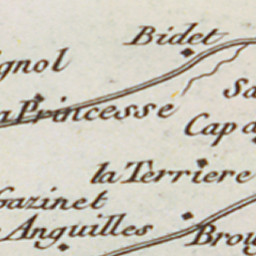 Bidet
gnol
Sa
a Princesse
Cap a
la Terriere
Gazinet
Anguilles
Brou